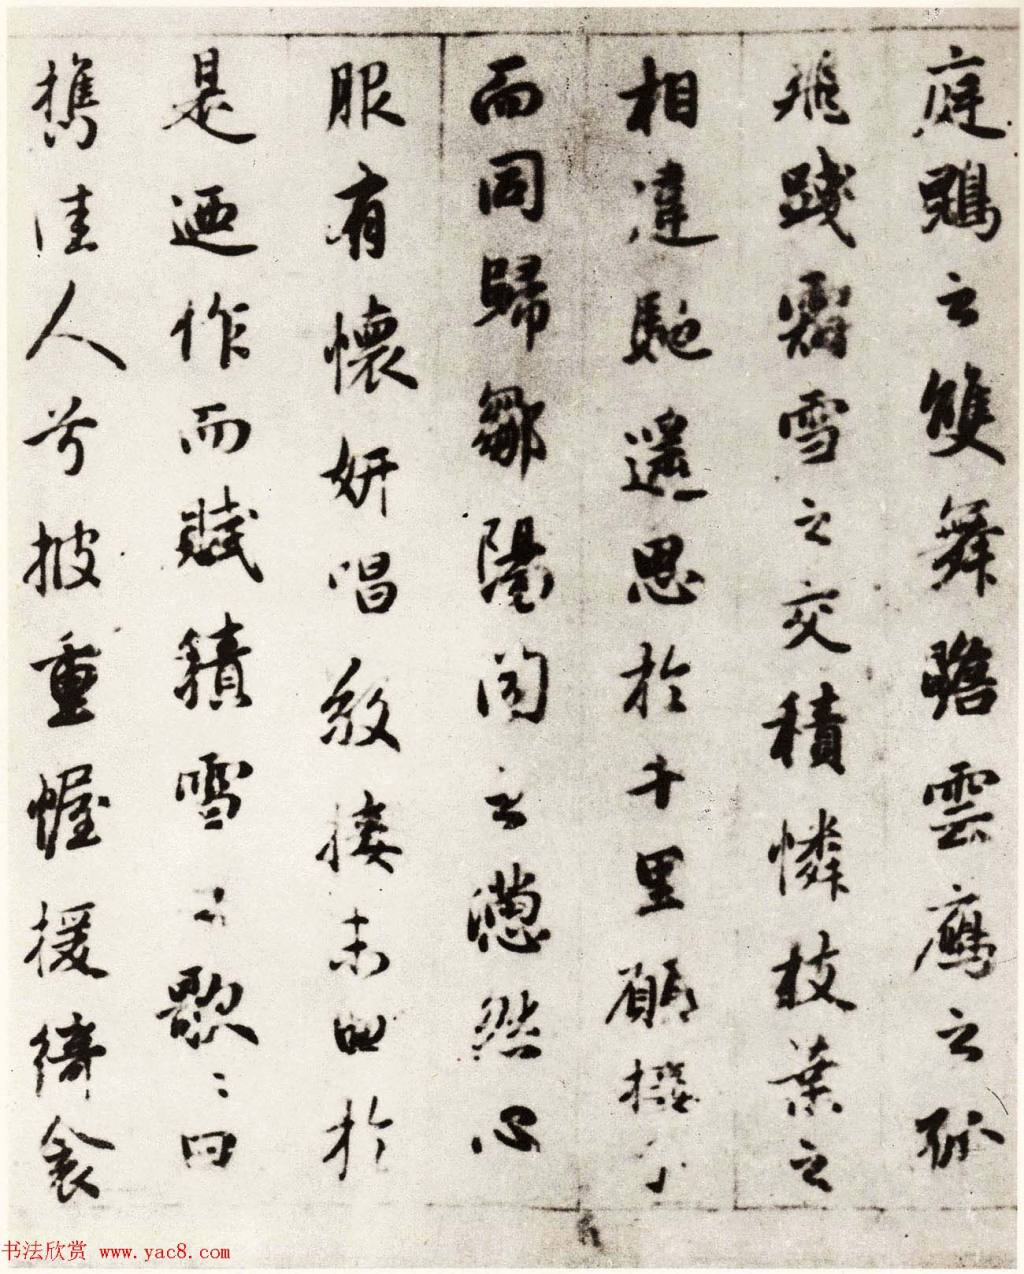 庭鵾之雙舞瞻雲鴈之孤
飛踐霜雪之交積憐枝葉之
相違馳遥思於千里願接手
而同歸鄒陽聞之懣然心
服有懷妍唱敬接末曲於
是迺作而賦積雪之歌〻曰
携佳人兮披重幄援綺衾
书法欣赏 www.yac8.com